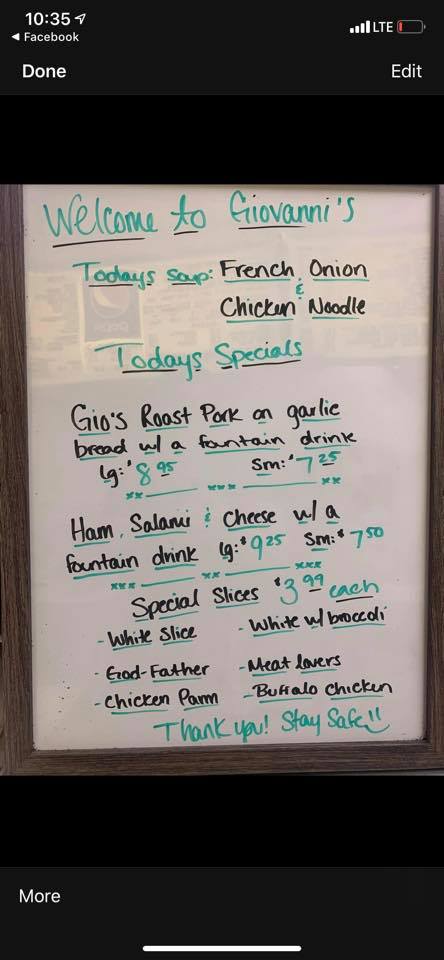 10:35
LTE
Facebook
Done
Edit
Welcome to Giovanni's
Todays soup: French Onion
&
Chicken Noodle
Todays Specials
Gio's Roast Pork on garlic
bread w/ a fountain drink
lg: $8.95 Sm: $7.25
Ham, Salami & Cheese w/ a
fountain drink lg: $9.25 Sm: $7.50
Special Slices $3.99 each
- White Slice - White w/ broccoli
- God-Father - Meat lovers
- Chicken Parm - Buffalo chicken
Thank you! Stay Safe!!
More